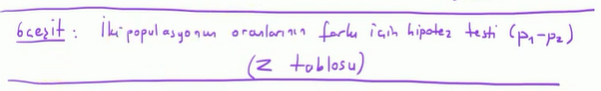 6ceşit: İki populasyonun oranlarının farkı için hipotez testi (p₁-p₂)
(Z tablosu)